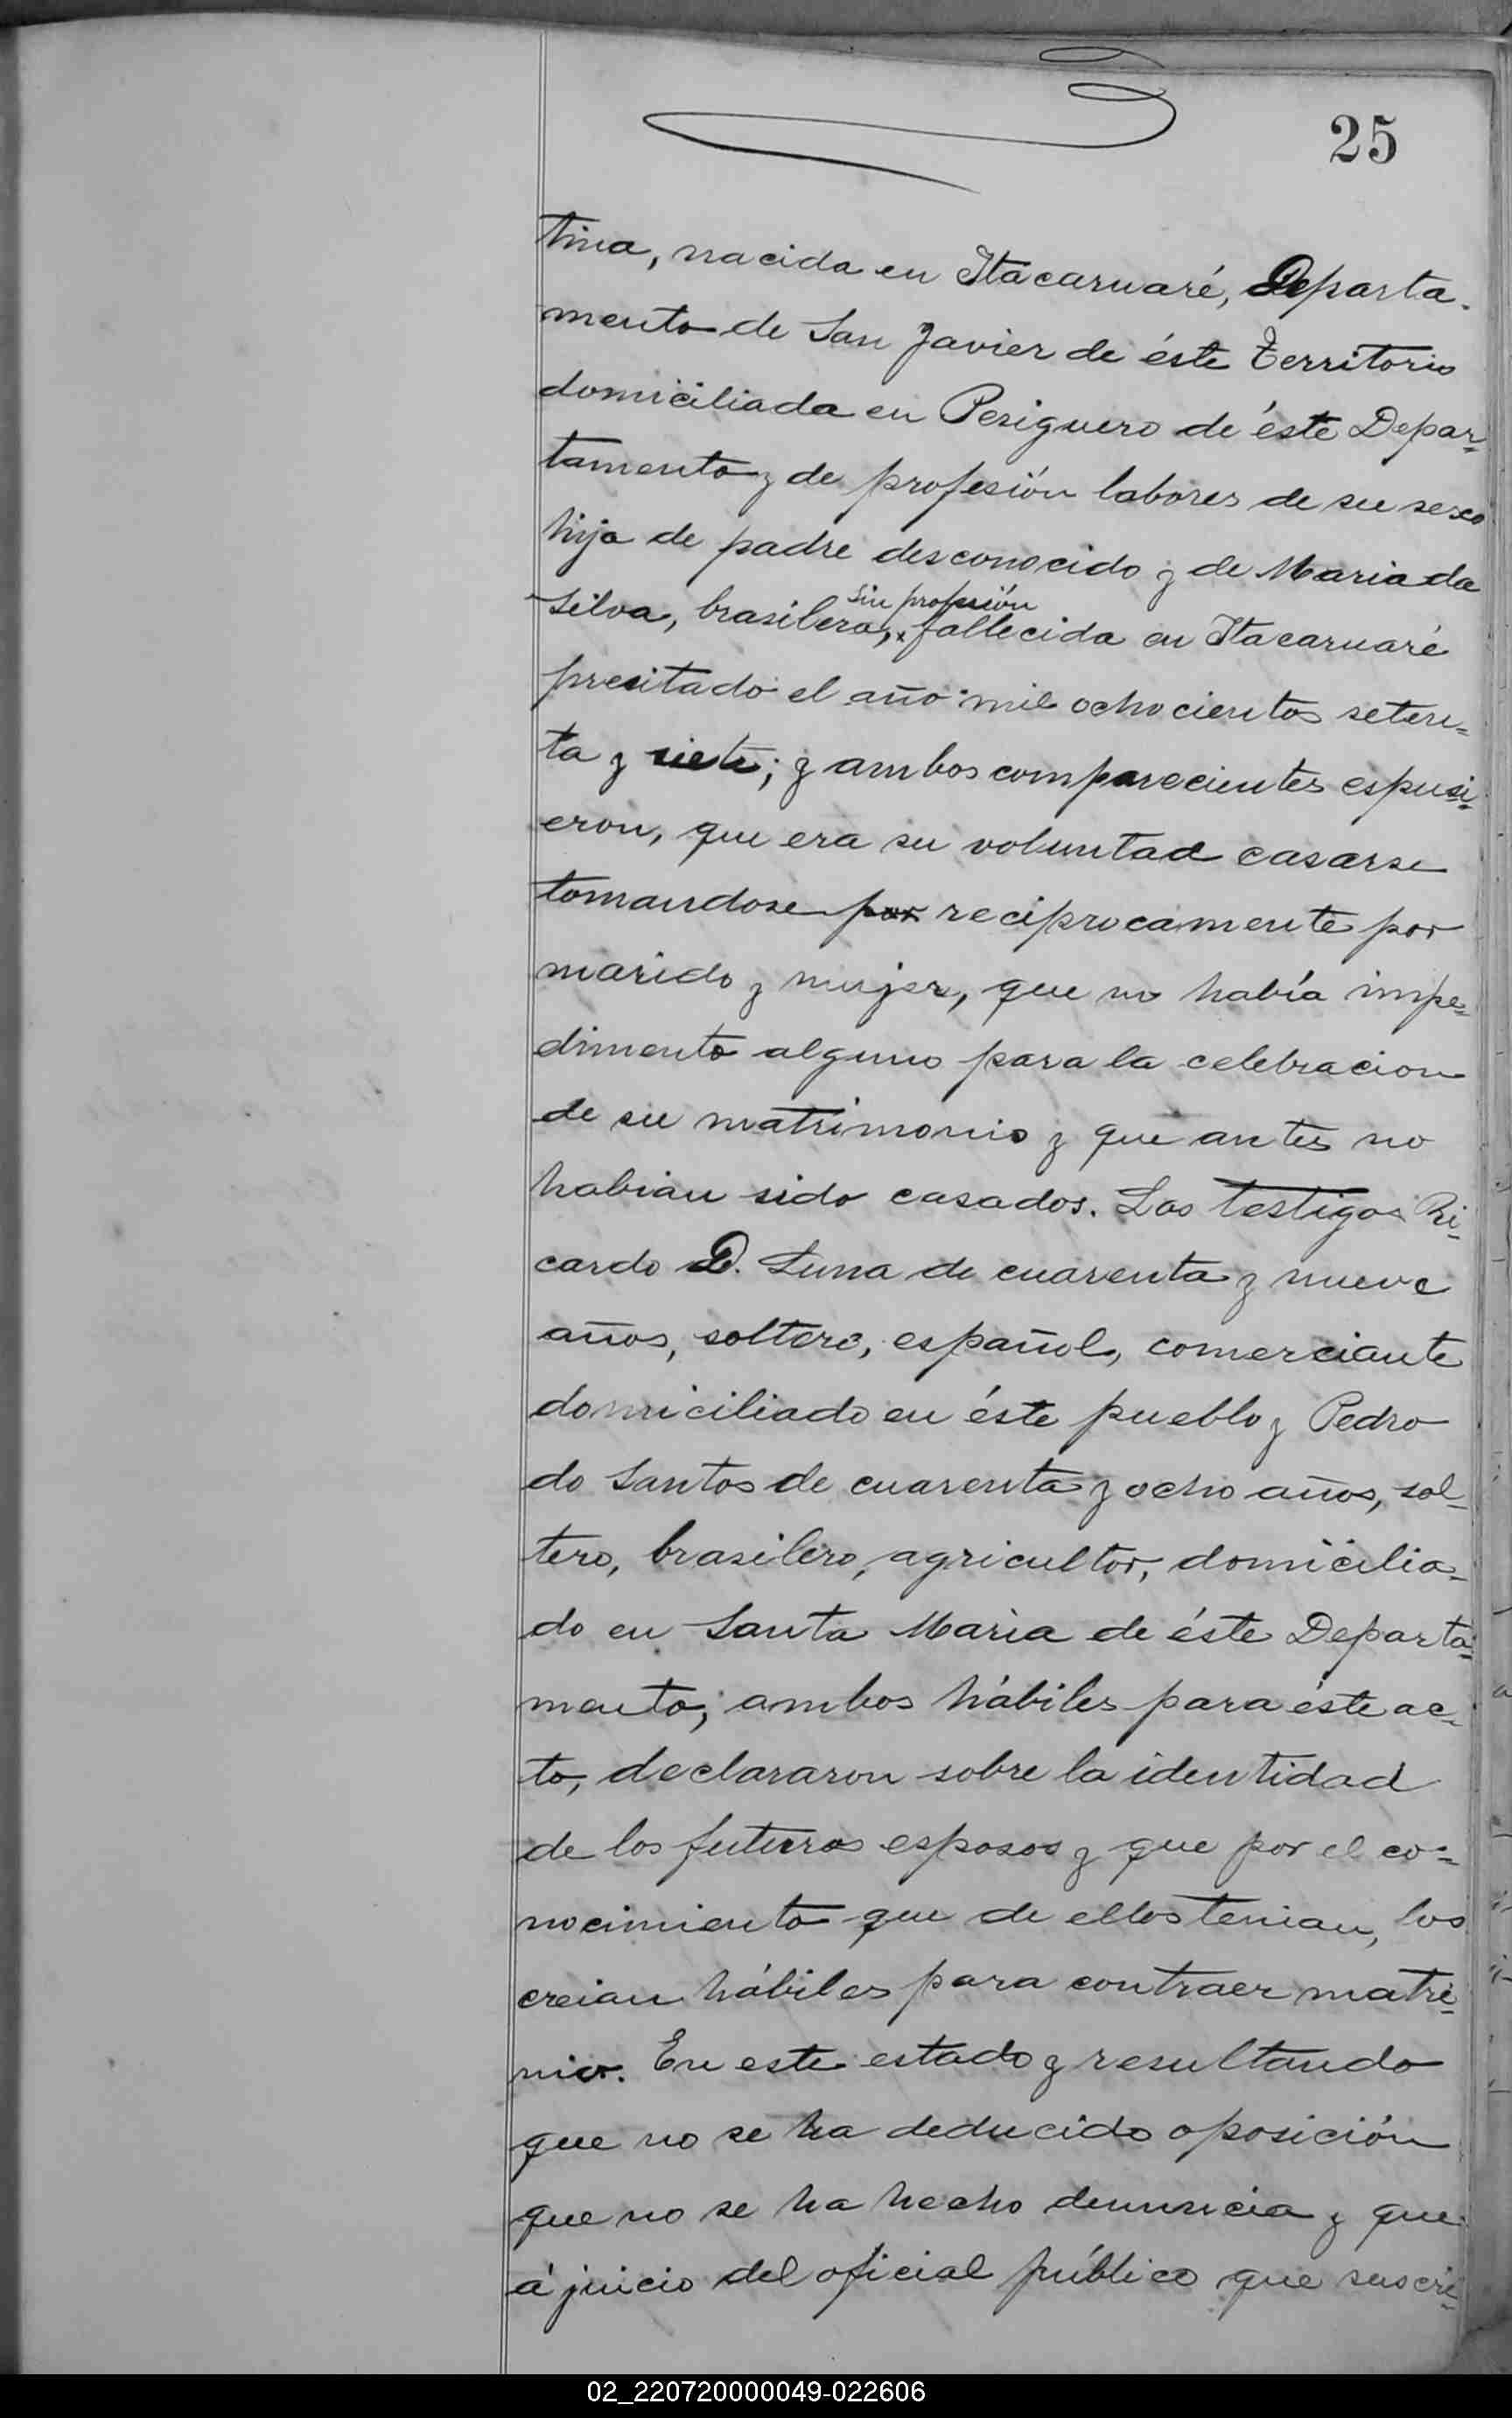 25
tina, nacida en Itacaruaré, Departa-
mento de San Javier de éste Territorio
domiciliada en Persiguero de éste Depar-
tamento y de profesión labores de su sexo
hija de padre desconocido y de Maria da
Silva, brasilera, sin profesión fallecida en Itacaruaré
precitado el año mil ochocientos seten-
ta y siete; y ambos comparecientes espusi-
eron, que era su voluntad casarse
tomandose por reciprocamente por
marido y mujer, que no había impe-
dimento alguno para la celebracion
de su matrimonio y que antes no
habian sido casados. Los testigos Ri-
cardo D. Luna de cuarenta y nueve
años, soltero, español, comerciante
domiciliado en éste pueblo y Pedro
do Santos de cuarenta y ocho años, sol-
tero, brasilero, agricultor, domicilia-
do en Santa Maria de éste Departa-
mento, ambos hábiles para éste ac-
to, declararon sobre la identidad
de los futuros esposos y que por el co-
nocimiento que de ellos tenian, los
creian hábiles para contraer matri-
nio. En este estado y resultando
que no se ha deducido oposición
que no se ha hecho denuncia y que
á juicio del oficial público que suscri-
02_220720000049-022606